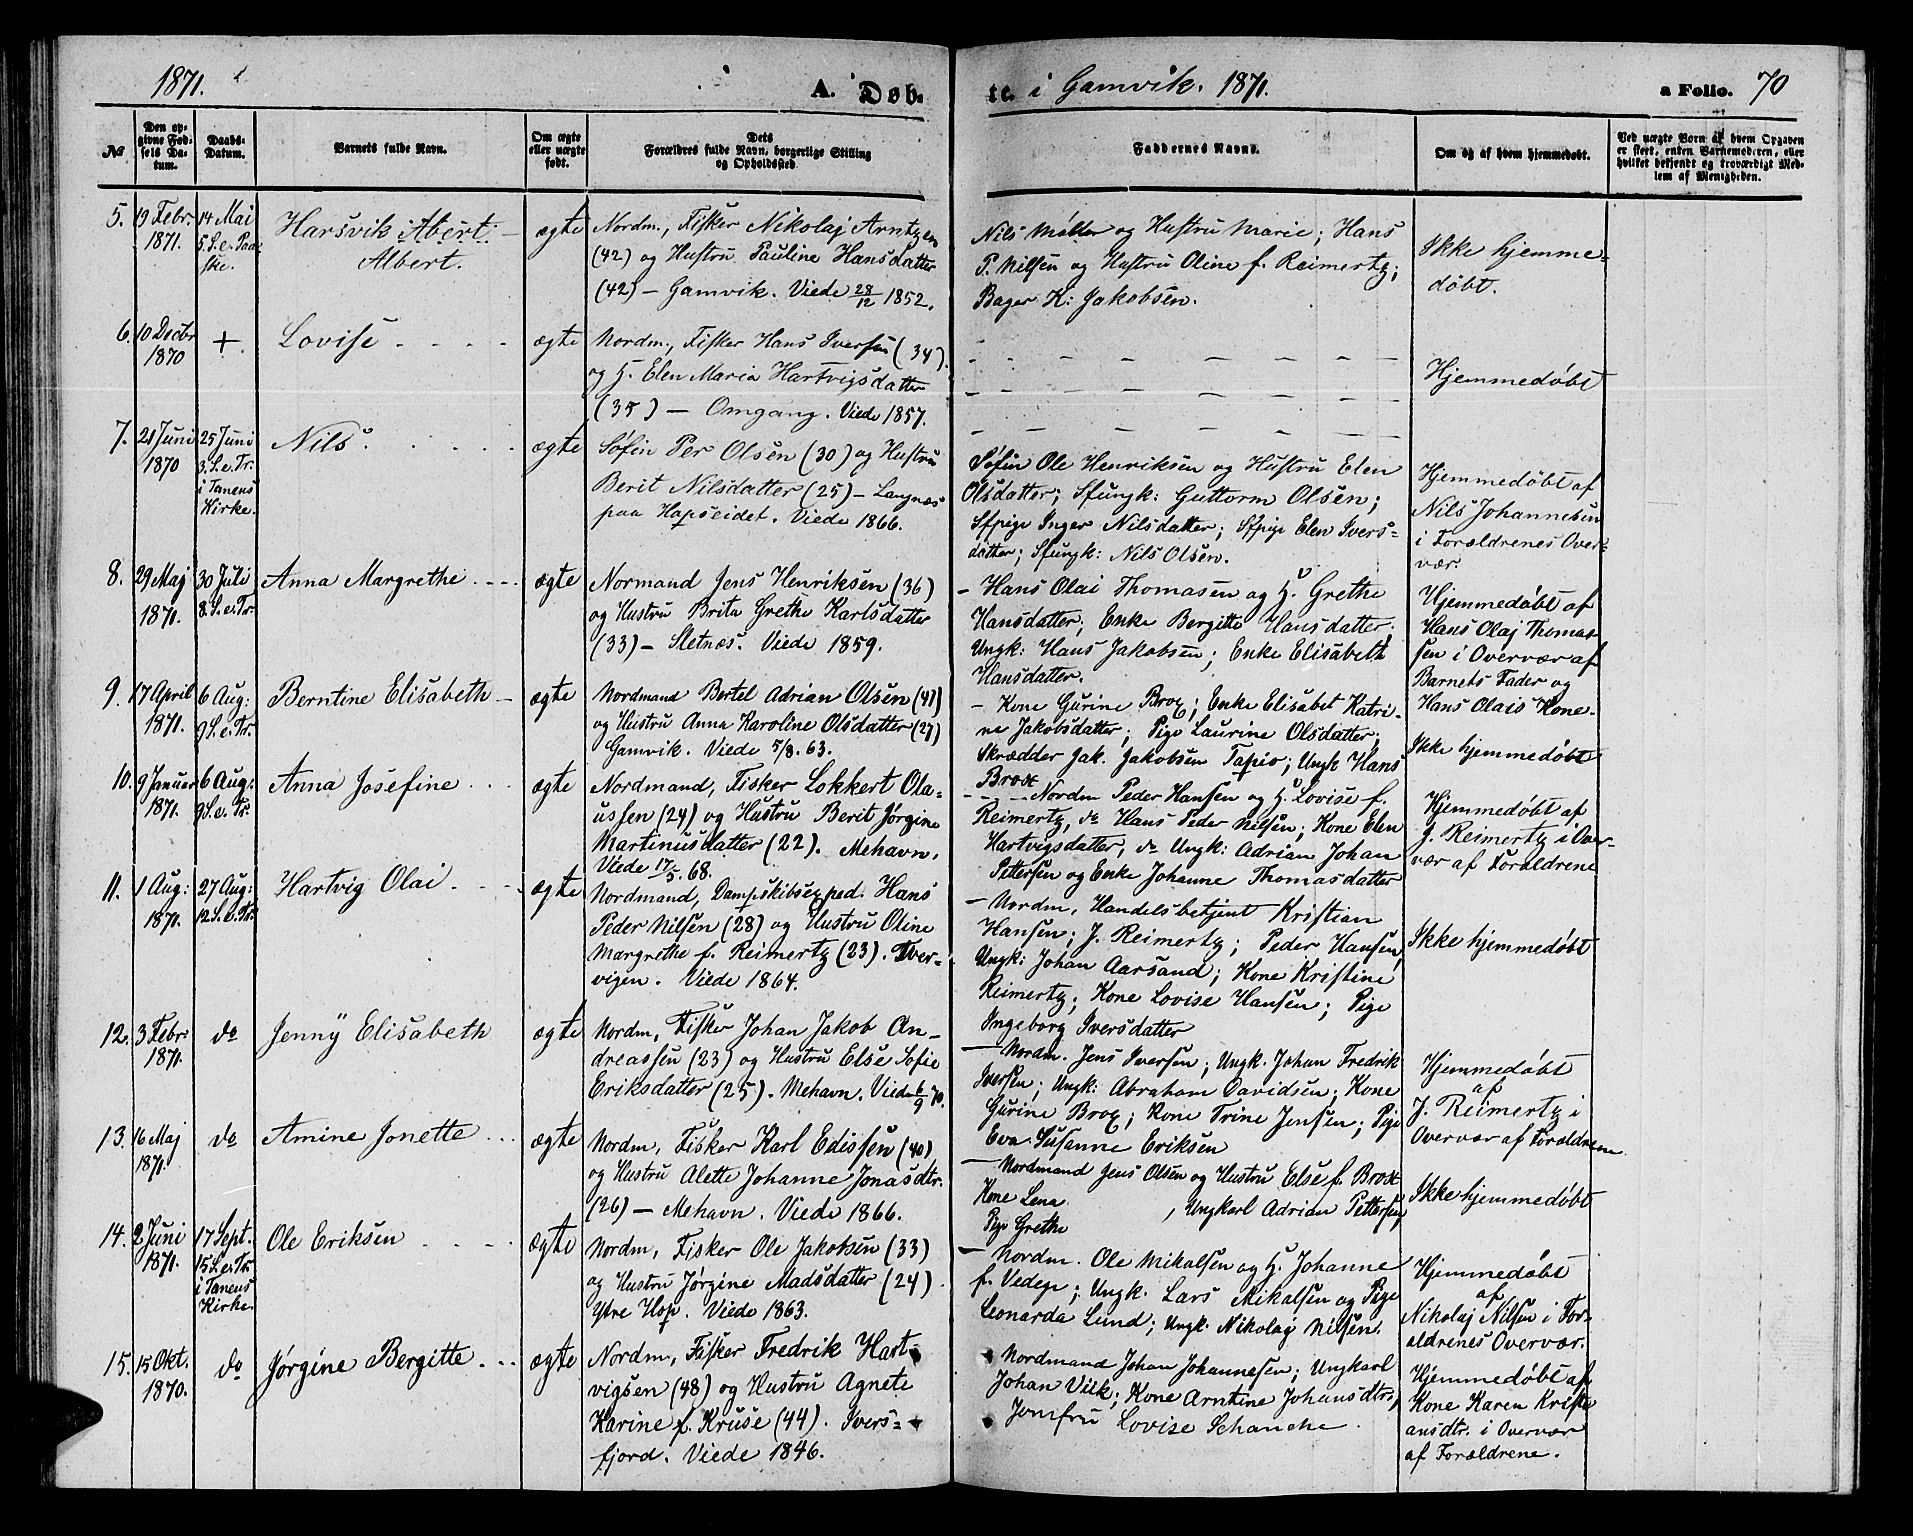 1871. A. Døb-
te. i Gamvik. 1871. a Folio. 70
No
Den op-
givne Fød-
sels Da-
tum.
Daabs-
Datum.
Barnets fulde Navn.
Om ægte
eller uægte
født.
Dets
Forældres fulde Navn, borgerlige Stilling
og Opholdssted.
Faddernes Navne.
Om og af hvem hjemmedøbt.
Ved uægte Børn af hvem Opgaven
er skeet, enten Barnemoderen, eller
hvilket bekjendt og troværdigt Med-
lem af Menigheden.
5.
19 Febr.
1871.
14 Mai
5. S. e. Paa-
ske.
Harsvik Abert
Albert.
ægte
Nordm., Fisker Nikolaj Arntzen
(42) og Hustru Pauline Hansdatter
(42) – Gamvik. Viede 28/12 1852.
Nils Møller og Hustru Marie; Hans
P. Nilsen og Hustru Oline f. Reimertz;
Bager K: Jakobsen.
Ikke hjemme-
døbt.
6.
10 Decbr
1870
+
Lovise
ægte
Nordm., Fisker Hans Iversen (34)
og H. Elen Maria Hartvigsdatter
(35) – Omgang. Viede 1857.
Hjemmedøbt
7.
21 Juni
1870
25 Juni
3. S. e. Tr.
i Tanens
Kirke.
Nils.
ægte
Søfin Per Olsen (30) og Hustru
Berit Nilsdatter (25) – Langnæs
paa Hopseidet. Viede 1866.
Søfin Ole Henriksen og Hustru Elen
Olsdatter; Sfungk: Guttorm Olsen;
Sfpige Inger Nilsdatter; Sfpige Elen Ivers-
datter; Sfungk: Nils Olsen.
Hjemmedøbt af
Nils Johannesen
i Forældrenes Over-
vær
8.
29 Maj
1871.
30 Juli
8. S. e. Tr.
Anna Margrethe
ægte
Normand Jens Henriksen (36)
og Hustru Brita Grethe Karlsdatter
(33) – Sletnæs. Viede 1859.
– Hans Olai Thomasen og H. Grethe
Hansdatter; Enke Bergitte Hansdatter;
Ungk: Hans Jakobsen; Enke Elisabeth
Hansdatter.
Hjemmedøbt af
Hans Olaj Thoma-
sen i Overvær af
Barnets Fader og
Hans Olais Kone.
9.
17 April
1871.
6 Aug:
9 S. e. Tr.
Berntine Elisabeth –
ægte
Nordmand Bertel Adrian Olsen (47)
og Hustru Anna Karoline Olsdatter (27)
Gamvik. Viede 5/8. 63.
– Kone Gurine Brox; Enke Elisabet Katri-
ne Jakobsdatter; Pige Laurine Olsdatter;
Skrædder Jak. Jakobsen Tapio; Ungk Hans
Brox
Ikke hjemmedøbt
10.
9 Januar
1871.
6 Aug:
9 S. e. Tr.
Anna Josefine
ægte
Nordmand, Fisker Lokkert Ola-
ussen (24) og Hustru Berit Jørgine
Martinusdatter (22). Mehavn.
Viede 17/5. 68.
– Nordm Peder Hansen og H. Lovise f.
Reimertz, do Hans Peder Nilsen; Kone Elen
Hartvigsdatter, do Ungk: Adrian Johan
Pettersen og Enke Johanne Thomasdatter
Hjemmedøbt af
J. Reimertz i Over-
vær af Forældrene
11.
1 Aug:
1871.
27 Aug:
12 S. e. Tr.
Hartvig Olai
ægte
Nordmand, Dampskibsexped. Hans
Peder Nilsen (28) og Hustru Oline
Margrethe f. Reimertz (23). Tver-
vigen. Viede 1864.
– Nordm, Handelsbetjent Kristian
Hansen; J. Reimertz; Peder Hansen,
Ungk: Johan Aarsand; Kone Kristine
Reimertz; Kone Lovise Hansen; Pige
Ingeborg Iversdatter
Ikke hjemmedøbt
12.
3 Febr:
1871.
do
Jenny Elisabeth
ægte
Nordm, Fisker Johan Jakob An-
dreassen (23) og Hustru Else Sofie
Eriksdatter (25). Mehavn. Viede 6/9 70.
– Nordm. Jens Iversen; Ungk. Johan Fredrik
Iversen; Ungk: Abraham Davidsen; Kone
Gurine Brox; Kone Trine Jensen; Pige
Eva Susanne Eriksen
Hjemmedøbt
af
J. Reimertz i
Overvær af Forældrene
13.
16 Maj
1871.
do
Amine Jonette
ægte
Nordm, Fisker Karl Edissen (40)
og Hustru Alette Johanne Jonasdtr.
(26) – Mehavn. Viede 1866.
– Nordmand Jens Olsen og Hustru Else f. Brox
Kone Lena
, Ungkarl Adrian Pettersen,
Pige Grethe
Ikke hjemmedøbt
14.
2 Juni
1871.
17 Sept.
15 S. e. Tr.
i Tanens
Kirke.
Ole Eriksen
ægte
Nordm, Fisker Ole Jakobsen (33)
og Hustru Jørgine Madsdatter (24).
Ytre Hop. Viede 1863.
– Nordm. Ole Mikalsen og H. Johanne
f. Vedege; Ungk. Lars Mikalsen og Pige
Leonarda Lund; Ungk. Nikolaj Nilsen.
Hjemmedøbt
af
Nikolaj Nilsen i For-
ældrenes Overvær.
15.
15 Okt.
1870.
do
Jørgine Bergitte
ægte
Nordm, Fisker Fredrik Hart-
vigsen (48) og Hustru Agnete
Karine f. Kruse (44). Ivers-
fjord. Viede 1846.
Nordmand Johan Johannesen; Ungkarl
Johan Viik; Kone Arntine Johansdtr;
Jomfru Lovise Schanche
Hjemmedøbt af
Kone Karen Kristi-
ansdtr. i Overvær
af Forældrene.